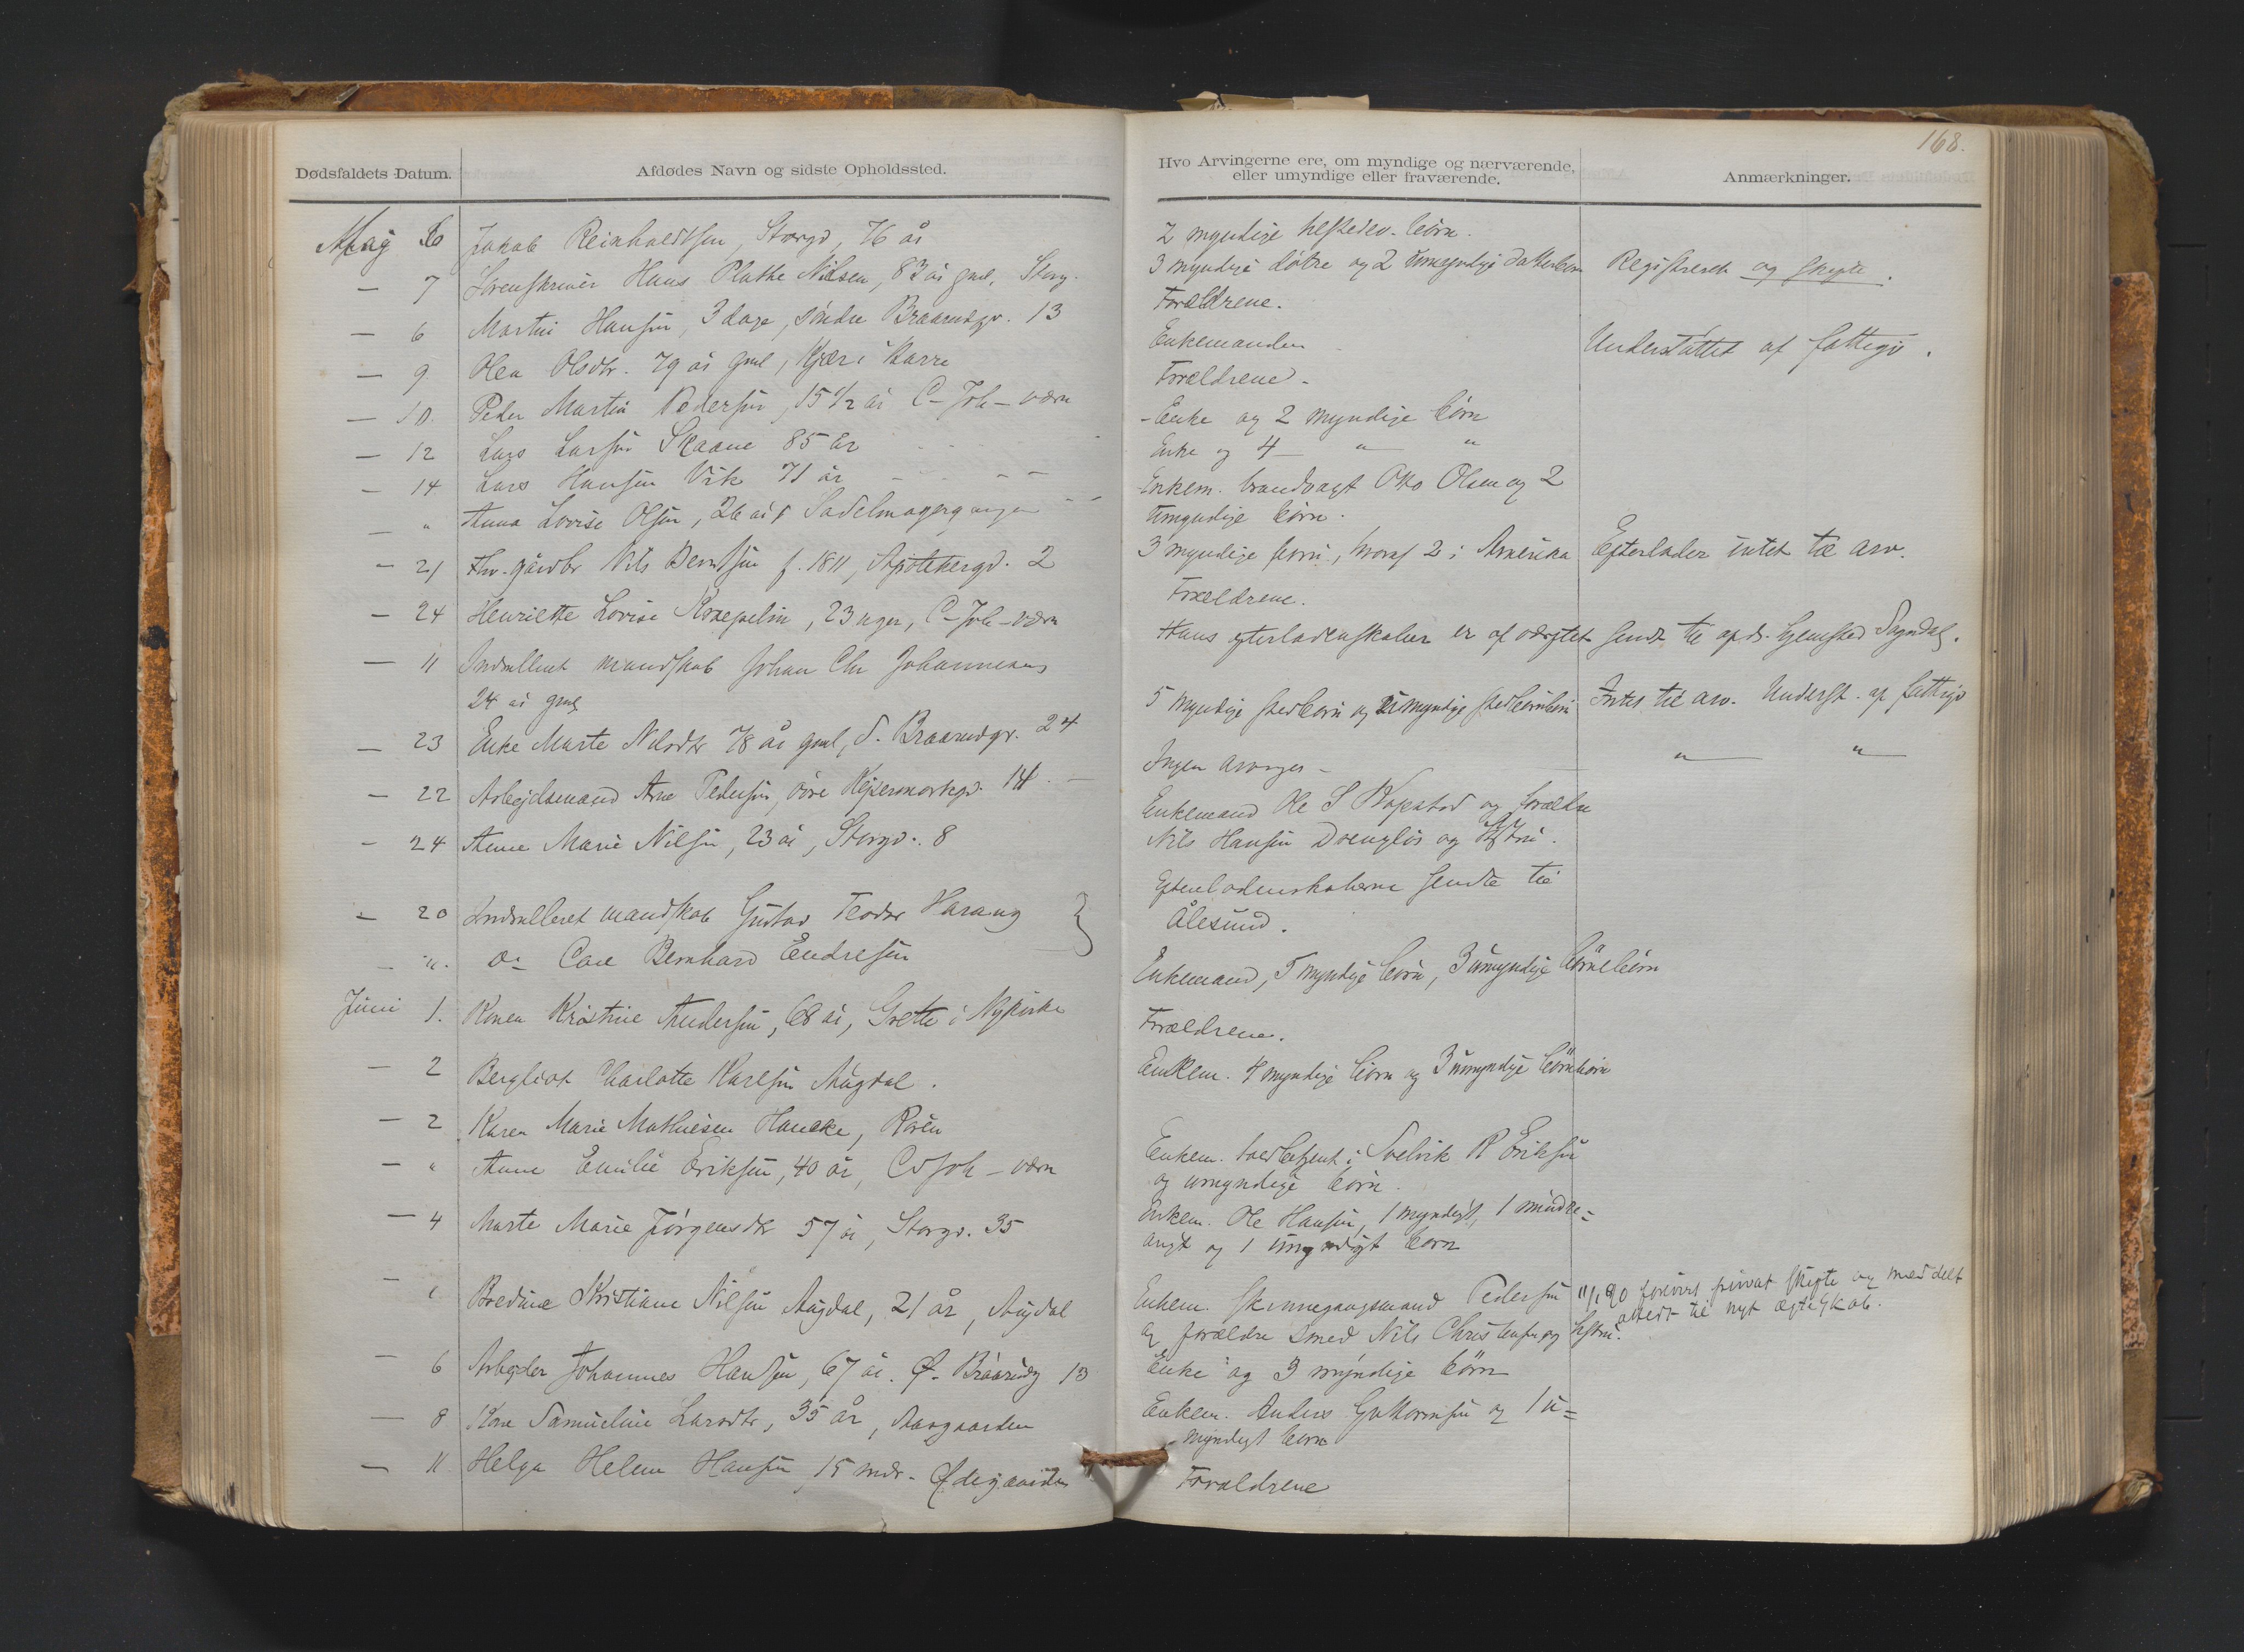 168.
Dødsfaldets Datum.
Afdødes Navn og sidste Opholdssted.
Hvo Arvingerne ere, om myndige og nærværende,
eller umyndige eller fraværende.
Anmærkninger.
Maj 6 Jakob Reinholdtsen, Storgd, 76 år
2 myndige børn.
— 7 Hans Plathe Nilsen, 83 år gml, Storg.
3 myndige døtre og 2 umyndige datterbørn
Registreret og skifte.
— 6 Martin Hansen, 3 dage, søndre Braarudgv. 13
Forældrene.
— 9 Olea Olsdtr. 79 år gml, Kjær i
Enkemanden
Understøttet af fattigv.
— 10. Peder Martin Pedersen, 15 1/2 år C-Joh-værn
Forældrene.
— 12 Lars Larsen Skaane 85 år
Enke og 2 myndige børn
— 14 Lars Hansen Vik 71 år
Enke og 4 — " — "
— " Anna Lovise Olsen, 26 år, Sadelmagergangen
Enkem. brandvagt Otto Olsen og 2
umyndige børn.
— 21 Fhv. gårdbr Nils Berntsen f. 1811, Apothekergd. 2
3 myndige børn, hvoraf 2 i Amerika
Efterlader intet til arv.
— 24 Henriette Lovise Kraepelin, 23 uger, C-Joh-værn
Forældrene.
— 11 Indrulleret mandskab Johan Chr Johannesen
24 år gml
Hans efterladenskaber er af værftet sendt til afds. hjemsted Sogndal.
— 23 Enke Marte Nilsdtr 78 år gml, S. Braarudgv. 24
5 myndige stedbørn og umyndige stedbørnbørn
Intet til arv. Underst. af fattigv
— 22 Arbejdsmand Arne Pedersen, øvre Kejsermarkgd. 14
Ingen arvinger —
" — "
— 24 Anne Marie Nilsen, 23 år, Storgd. 8
Enkemand Ole S Kopstad og forældre
Nils Hansen Drengløs og Hustru.
— 20 Indrulleret mandskab Gustav Teodor Harang
— " do Carl Bernhard Endresen
Efterladenskaberne sendte til
Ålesund.
Juni 1. Konen Kristine Andersen, 68 år, Grette i Nykirke
Enkemand, 5 myndige børn, 3 umyndige børnebørn
— 2 Bergliot Charlotte Karlsen Augdal.
Forældrene.
— 2 Karen Marie Mathiesen Hancke, Røren
Enkem. 4 myndige børn og 3 umyndige børnbørn
— " Anne Emilie Eriksen, 40 år, C Joh-værn
Enkem. toldbetjent i Svelvik R Eriksen
og umyndige børn.
— 4 Marte Marie Jørgensdtr 57 år, Storgd. 35
Enkem. Ole Hansen, 1 myndigt, 1 mindre=
årigt og 1 umyndigt barn
— " Bredine Kristiane Nilsen Augdal, 21 år, Augdal
Enkem. Skinnegangsmand Pedersen
og forældre smed Nils Christensen og hustru.
11/1 90 forevist privat skifte og meddelt
attest til nyt ægteskab.
— 6 Arbejder Johannes Hansen, 67 år. Ø. Braarudg 13
Enke og 3 myndige børn
— 8 Kone Samueline Larsdtr, 35 år, Aasgaarden
Enkem. Anders Guttormsen og 1 u=
myndigt barn
— 11 Helga Helene Hansen 15 mdr. Ødegaarden
Forældrene